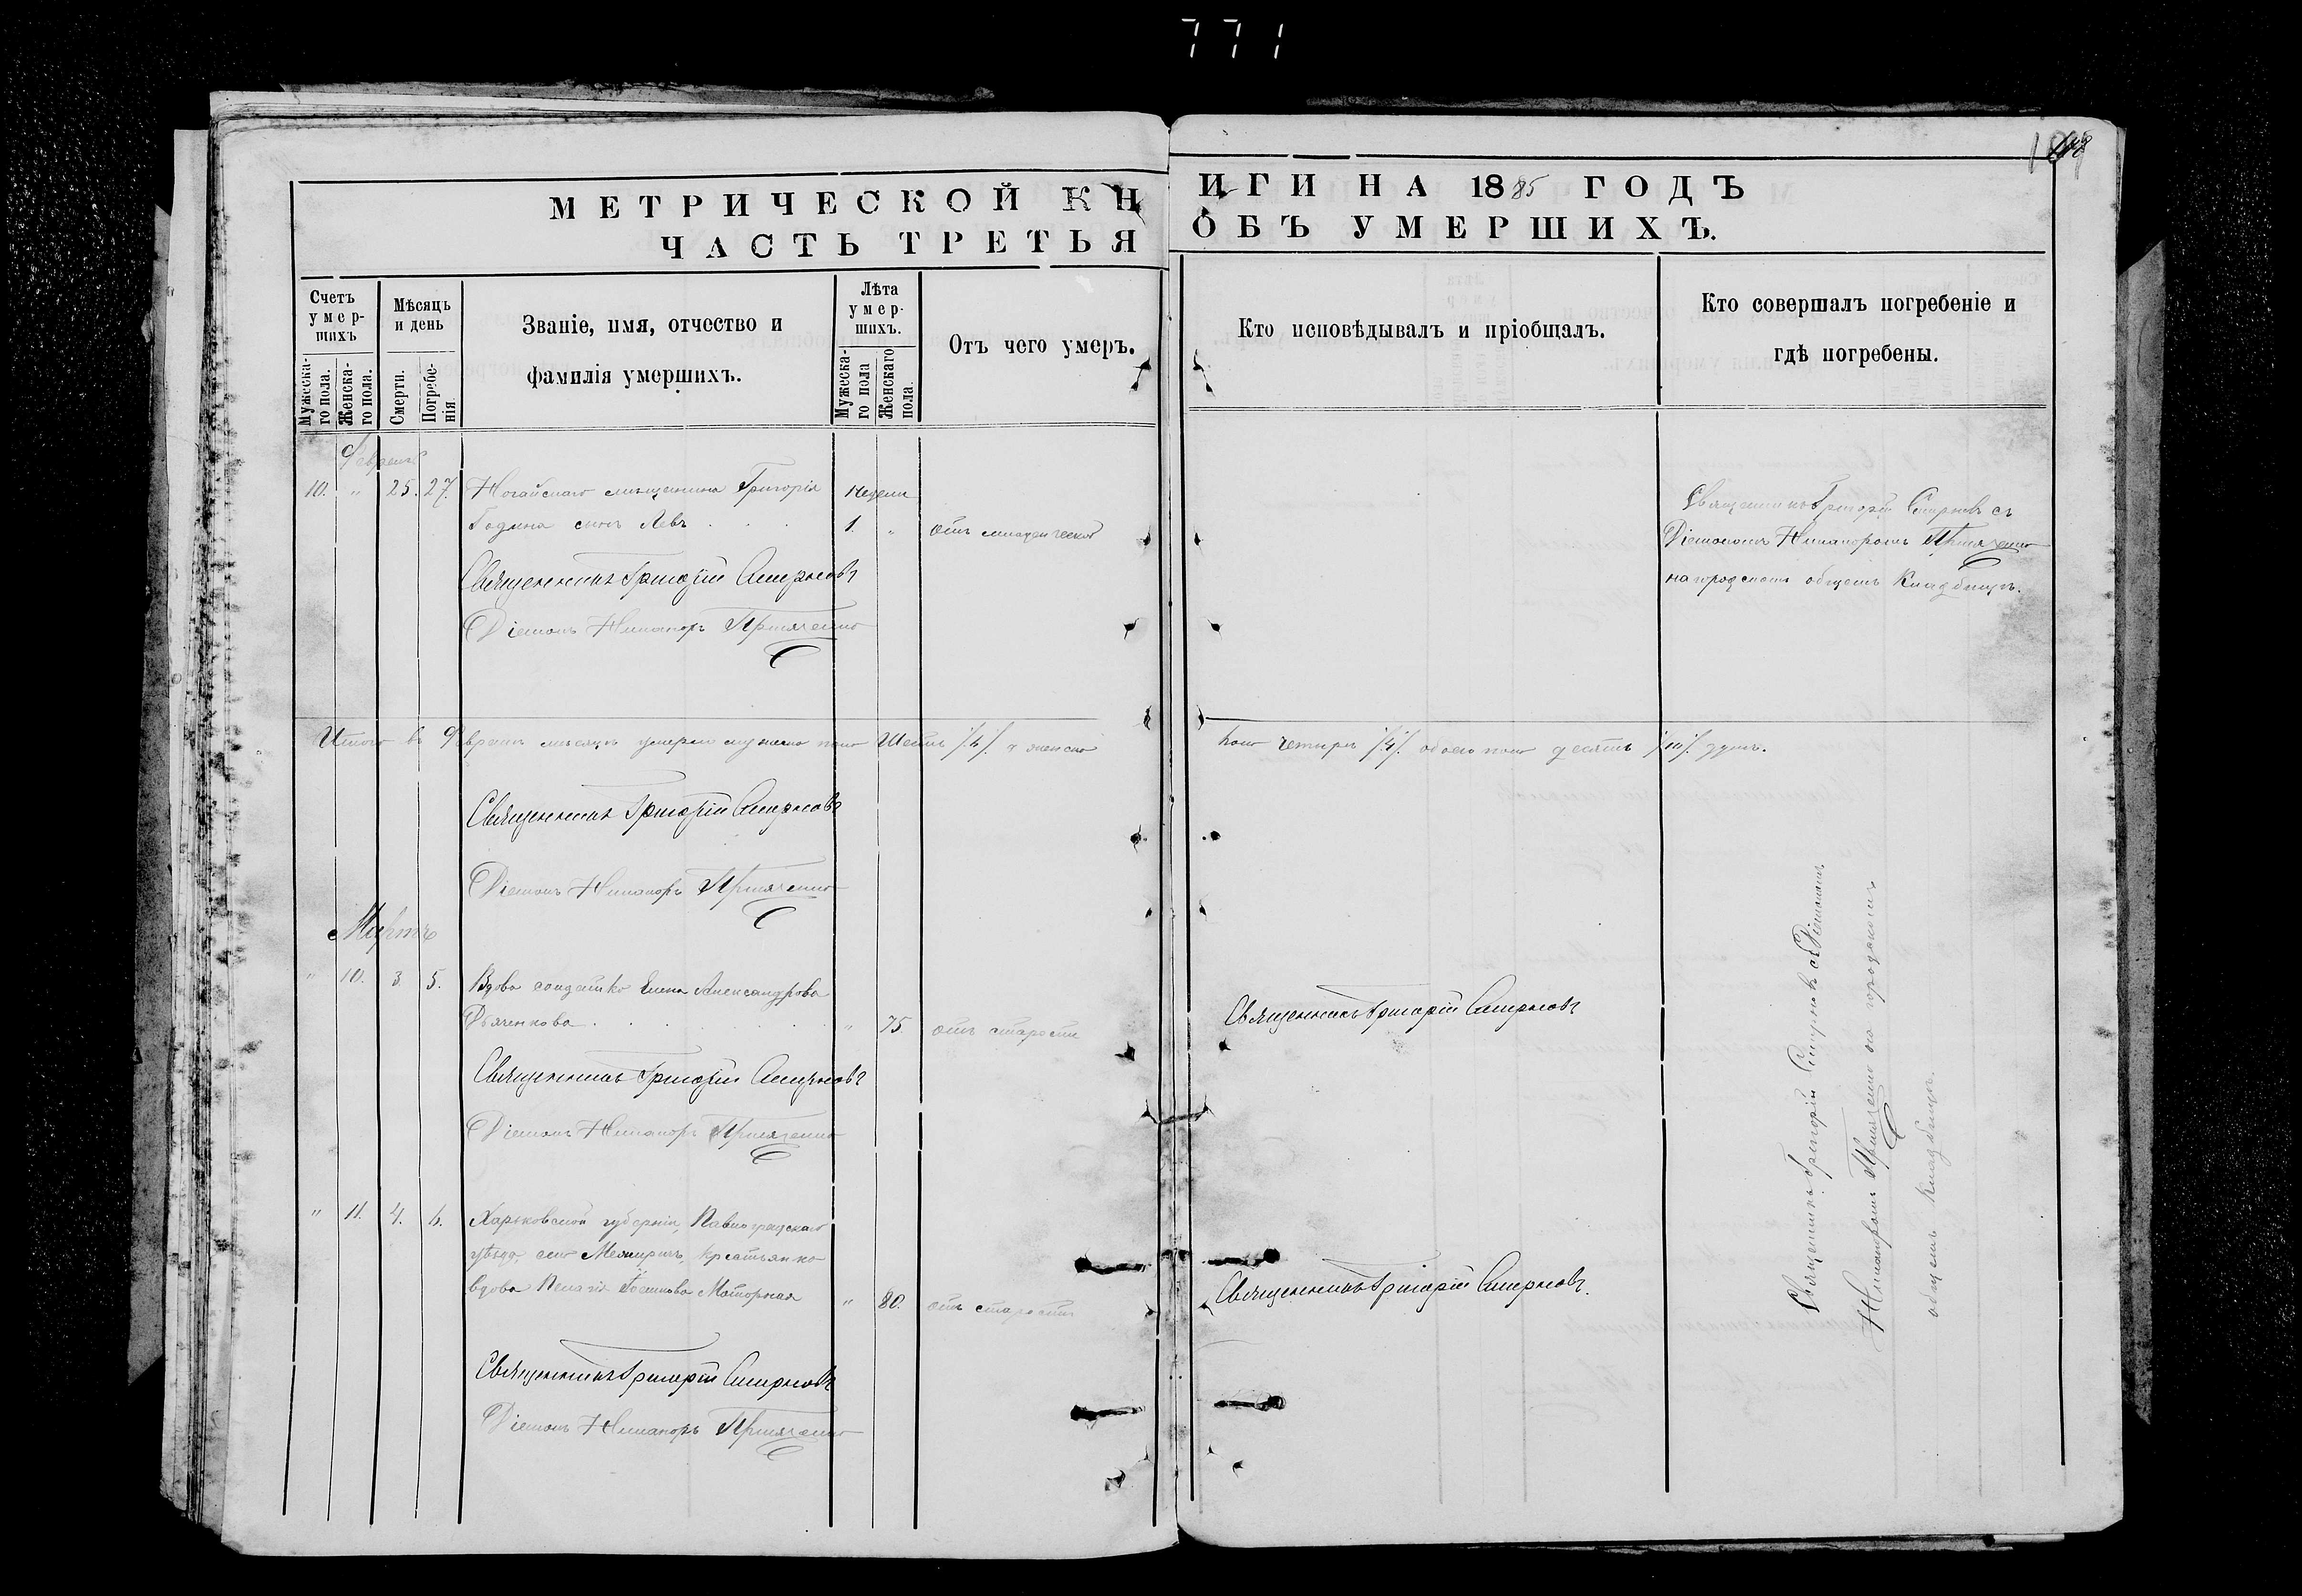 771
МЕТРИЧЕСКОЙ КНИГИ НА 1885 ГОДЪ
ЧАСТЬ ТРЕТЬЯ ОБЪ УМЕРШИХЪ.
Счетъ умер-
шихъ
Мужеска-
го пола.
Женска-
го пола.
Мѣсяць
и день
Смерти.
Погребе-
нія.
Званіе, имя, отчество и
фамилія умершихъ.
Лѣта
умер-
шихъ.
Мужеска-
го пола
Женскаго
пола.
Отъ чего умеръ.
Кто исповѣдывалъ и пріобщалъ.
Кто совершалъ погребеніе и
гдѣ погребены.
Февраль
10. " 25. 27. Ногайскаго мѣщанина Григорія недели
сынъ Левъ . . . 1. " отъ младенческой
Священникъ Григорій Смирновъ
Діаконъ Никаноръ
Священникъ Григорій Смирновъ съ
Діакономъ Никаноромъ
на городскомъ общемъ кладбищѣ.
Итого въ Февралѣ мѣсяцѣ умерло мужеска пола шесть /6/. и женска
пола четыре /4/. обоего пола десять /10/. душъ.
Священникъ Григорій Смирновъ
Діаконъ Никаноръ
Мартъ
" 10. 3. 5. Вдова солдатка Елена Александрова
Дьяченкова . . . " 75 отъ старости
Священникъ Григорій Смирновъ
Священникъ Григорій Смирновъ
Діаконъ Никаноръ
" 11. 4. 6. Харьковской губерніи, Павлоградскаго
уѣзда, села Межиричъ, крестьянка
вдова Пелагія Моторная " 80. отъ старости
Священникъ Григорій Смирновъ.
Священникъ Григорій Смирновъ
Діаконъ Никаноръ
Священникъ Григорій Смирновъ съ Діакономъ
Никаноромъ на городскомъ
общемъ кладбищѣ.